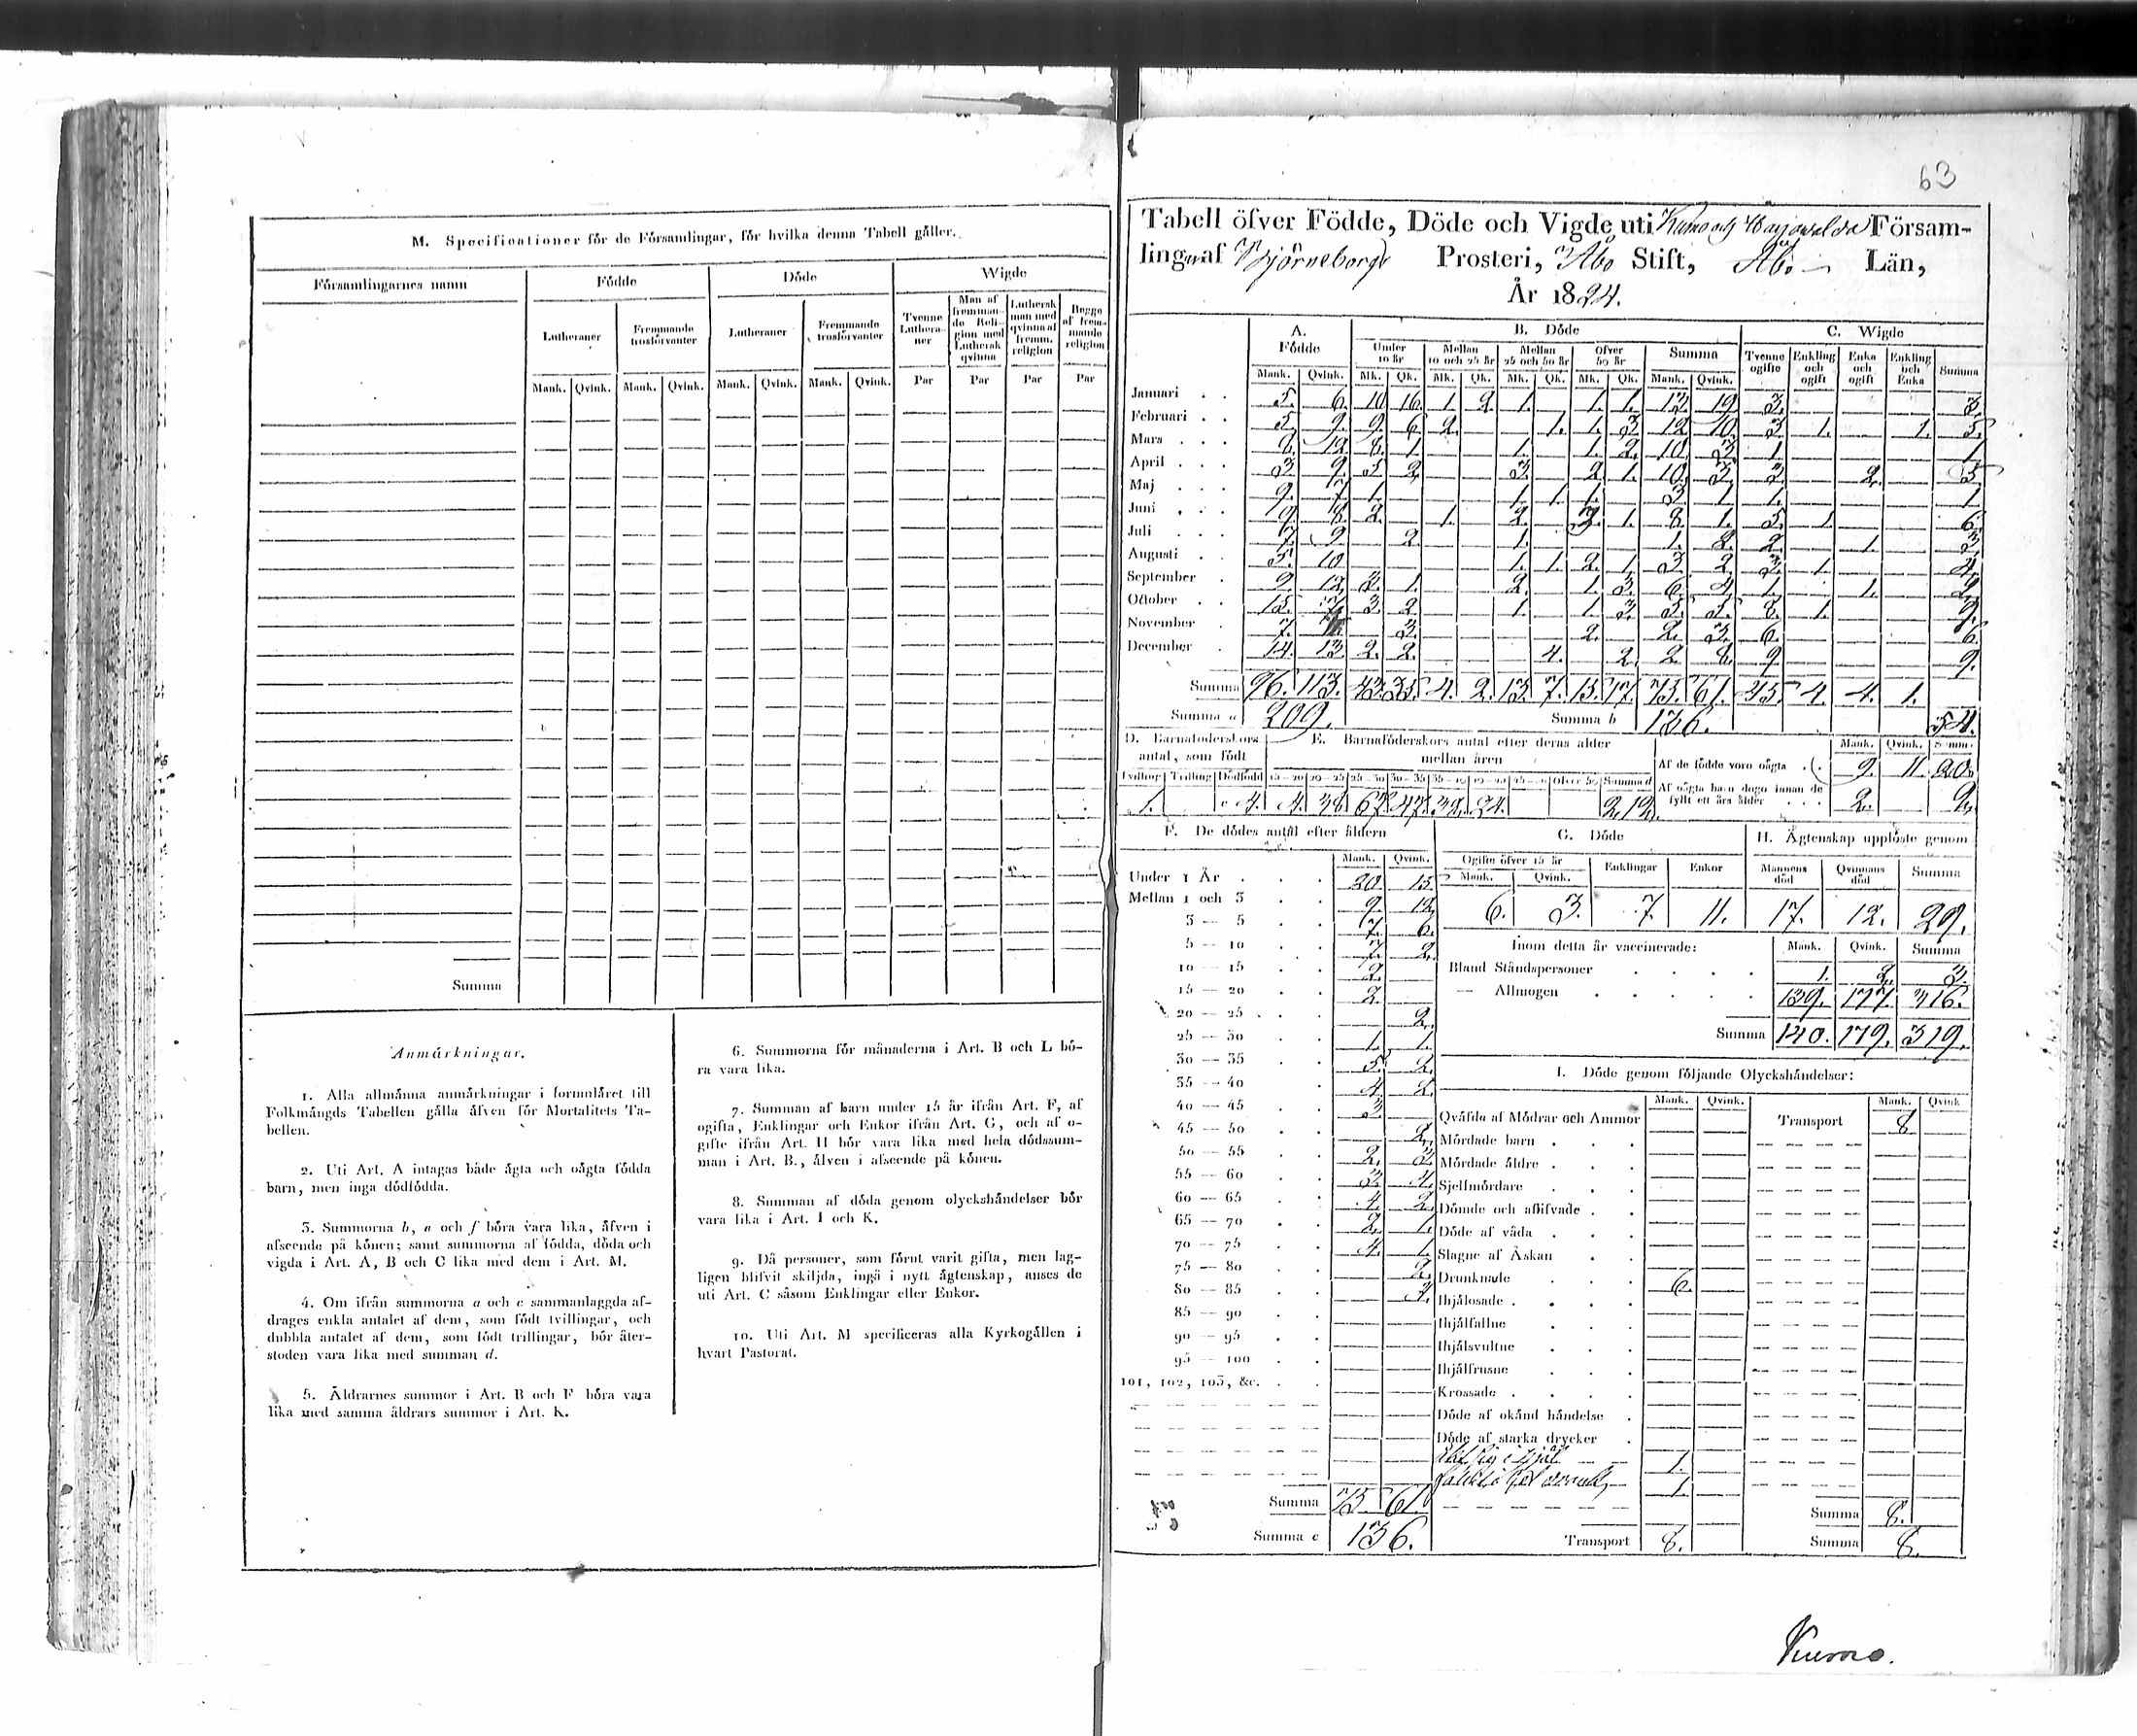 M. Specificationer för de Församlingar, för hvilka denna Tabell gäller.
Församlingarnes namn Födde Döde Wigde
Lutheraner Fremmande trosförvanter Lutheraner Fremmande trosförvanter Tvenne Lutheraner Man af fremmande Religion med Luthersk qvinna Luthersk man med qvinna af fremm. religion Begge af fremmande religion
Mank. Qvink. Mank. Qvink. Mank. Qvink. Mank. Qvink. Par Par Par Par
Summa
Anmärkningar.
1. Alla allmänna anmärkningar i formuläret till
Folkmängds Tabellen gälla äfven för Mortalitets Ta-
bellen.
2. Uti Art. A intagas både ägta och oägta födda
barn, men inga dödfödda.
3. Summorna b, e och f böra vara lika, äfven i
afseende på könen; samt summorna af födda, döda och
vigda i Art. A, B och C lika med dem i Art. M.
4. Om ifrån summorna a och c sammanlaggda af-
drages enkla antalet af dem, som födt tvillingar, och
dubbla antalet af dem, som födt trillingar, bör åter-
stoden vara lika med summan d.
5. Åldrarnes summor i Art. B och F böra vara
lika med samma åldrars summor i Art. K.
6. Summorna för månaderna i Art. B och L bö-
ra vara lika.
7. Summan af barn under 15 år ifrån Art. F, af
ogifta, Enklingar och Enkor ifrån Art. G, och af o-
gifte ifrån Art. H bör vara lika med hela dödssum-
man i Art. B., älven i afseende på könen.
8. Summan af döda genom olyckshändelser bör
vara lika i Art. I och K.
9. Då personer, som förut varit gifta, men lag-
ligen blifvit skiljda, ingå i nytt ägtenskap, anses de
uti Art. C såsom Enklingar eller Enkor.
10. Uti Art. M specificeras alla Kyrkogällen i
hvart Pastorat.
63
Tabell öfver Födde, Döde och Vigde uti Kumo och Harjawalda Försam-
lingar af Björneborgs Prosteri, Åbo Stift, Åbo Län,
År 1824.
A. Födde B. Döde C. Wigde
Under 10 år Mellan 10 och 25 år Mellan 25 och 50 år Öfver 50 år Summa Tvenne ogifte Enkling och ogift Enka och ogift Enkling och Enka Summa
Mank. Qvink. Mk. Qk. Mk. Qk. Mk. Qk. Mk. Qk. Mank. Qvink.
Januari 5. 6. 10 16. 1. 2. 1. 1. 1. 13. 19 3. 3.
Februari 5. 9. 9. 6. 2. 1. 1. 3. 12 10. 3. 1. 1. 5.
Mars 8. 12. 8. 1. 1. 1. 2. 10. 3. 1. 1
April 3. 9. 5. 2. 3. 2. 1. 10. 3. 3. 2. 5.
Maj 9. 7. 1. 1. 1. 1. 3. 1 1. 1
Juni 9. 8. 2. 1. 2. 3. 1. 8. 1. 5. 1. 6.
Juli 7. 9. 2. 1. 1. 2. 2. 1. 3.
Augusti 5. 10 1. 1. 2. 1. 3. 2. 3. 1. 4.
September 9. 12. 3. 1. 2. 1. 3. 6. 4. 1. 1. 2.
October 15. 7. 3. 2. 1. 1. 3. 5. 5. 8. 1. 9.
November 7. 3. 2. 2. 3. 6. 6.
December 14. 13. 2. 2. 4. 2. 2. 8. 9 9.
Summa 96. 113. 43. 35. 4. 2. 13. 7. 15. 17. 75. 61. 45. 4. 4. 1.
Summa a 209. Summa b 136. 54.
D. Barnaföderskors antal, som födt E. Barnaföderskors antal efter deras ålder mellan åren Mank. Qvink. Summa
Af de födde voro oägta 9. 11. 20.
Tvilling Trilling Dödfödd 15–20 20–25 25–30 30–35 35–40 40–45 Öfver 50 Summa d
Af oägta barn dogo innan de fyllt ett års ålder 2. 2.
1. 4. 4. 38. 67. 47. 32. 24. 212.
F. De dödes antal efter åldern G. Döde H. Ägtenskap upplöste genom
Mank. Qvink. Ogifte öfver 15 år Enklingar Enkor Mannens död Qvinnans död Summa
Mank. Qvink.
6. 3. 7. 11. 17. 12. 29.
Under 1 År 20. 15.
Mellan 1 och 3 9. 12.
3 — 5 7. 6.
5 — 10 7. 2.
10 — 15 2.
15 — 20 2.
20 — 25 2.
25 — 30 1. 1.
30 — 35 5. 2.
35 — 40 4. 2.
40 — 45 3.
45 — 50 2.
50 — 55 2. 3.
55 — 60 3. 4.
60 — 65 4. 2.
65 — 70 2. 1.
70 — 75 4. 1.
75 — 80 2.
80 — 85 4.
85 — 90
90 — 95
95 — 100
101, 102, 103, &c.
Summa 75 61.
Summa e 136.
Inom detta år vaccinerade: Mank. Qvink. Summa
Bland Ståndspersoner 1. 2. 3.
— Allmogen 139. 177. 316.
Summa 140. 179. 319.
I. Döde genom följande Olyckshändelser:
Mank. Qvink. Mank. Qvink
Qväfde af Mödrar och Ammor Transport 8
Mördade barn
Mördade äldre
Sjelfmördare
Dömde och aflifvade
Döde af våda
Slagne af Åskan
Drunknade 6.
Ihjälosade
Ihjälfallne
Ihjälsvultne
Ihjälfrusne
Krossade
Döde af okänd händelse
Döde af starka drycker
1.
1.
Summa 8.
Transport 8. Summa 8.
Kumo.